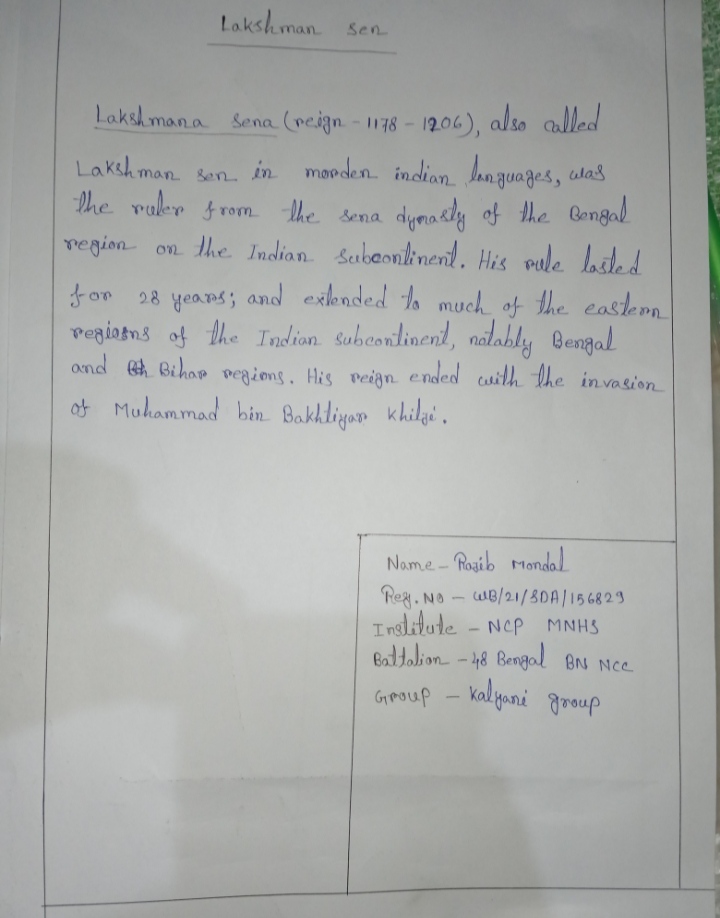 Lakshman sen
Lakshmana sena (reign - 1178 - 1206), also called
Lakshman sen in morden indian languages, was
the ruler from the sena dynasty of the Bengal
region on the Indian subcontinent. His rule lasted
for 28 years; and extended to much of the eastern
regions of the Indian subcontinent, notably Bengal
and Bihar regions. His reign ended with the invasion
of Muhammad bin Bakhtiyar khilji.
Name - Rajib Mondal
Reg. No - WB/21/SDA/156829
Institute - NCP MNHS
Battalion - 48 Bengal BN NCC
Group - Kalyani group